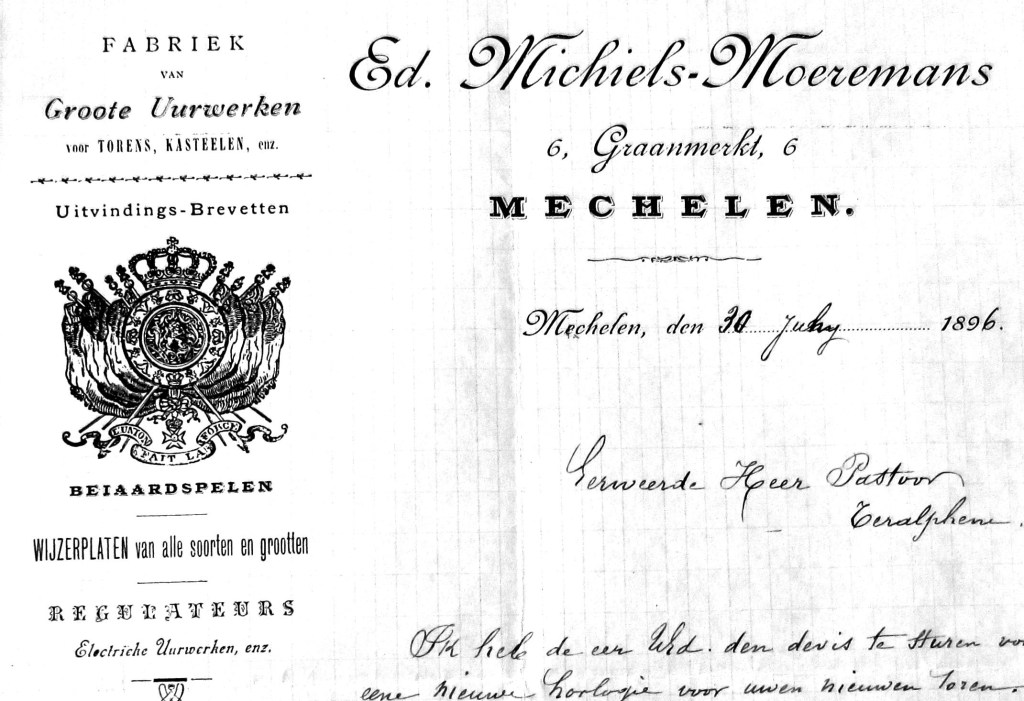 FABRIEK
VAN
Groote Uurwerken
voor TORENS, KASTEELEN, enz.
Uitvindings-Brevetten
L'UNION
FAIT LA
FORCE
BEIAARDSPELEN
WIJZERPLATEN van alle soorten en grootten
REGULATEURS
Electriche Uurwerken, enz.
Ed. Michiels-Moeremans
6, Graanmerkt, 6
MECHELEN.
Mechelen, den 30 July 1896.
Eerweerde Heer Pastoor
Teralphene.
Ik heb de eer Urd. den devis te sturen vo
eene nieuwe horlogie voor uwen nieuwen toren.